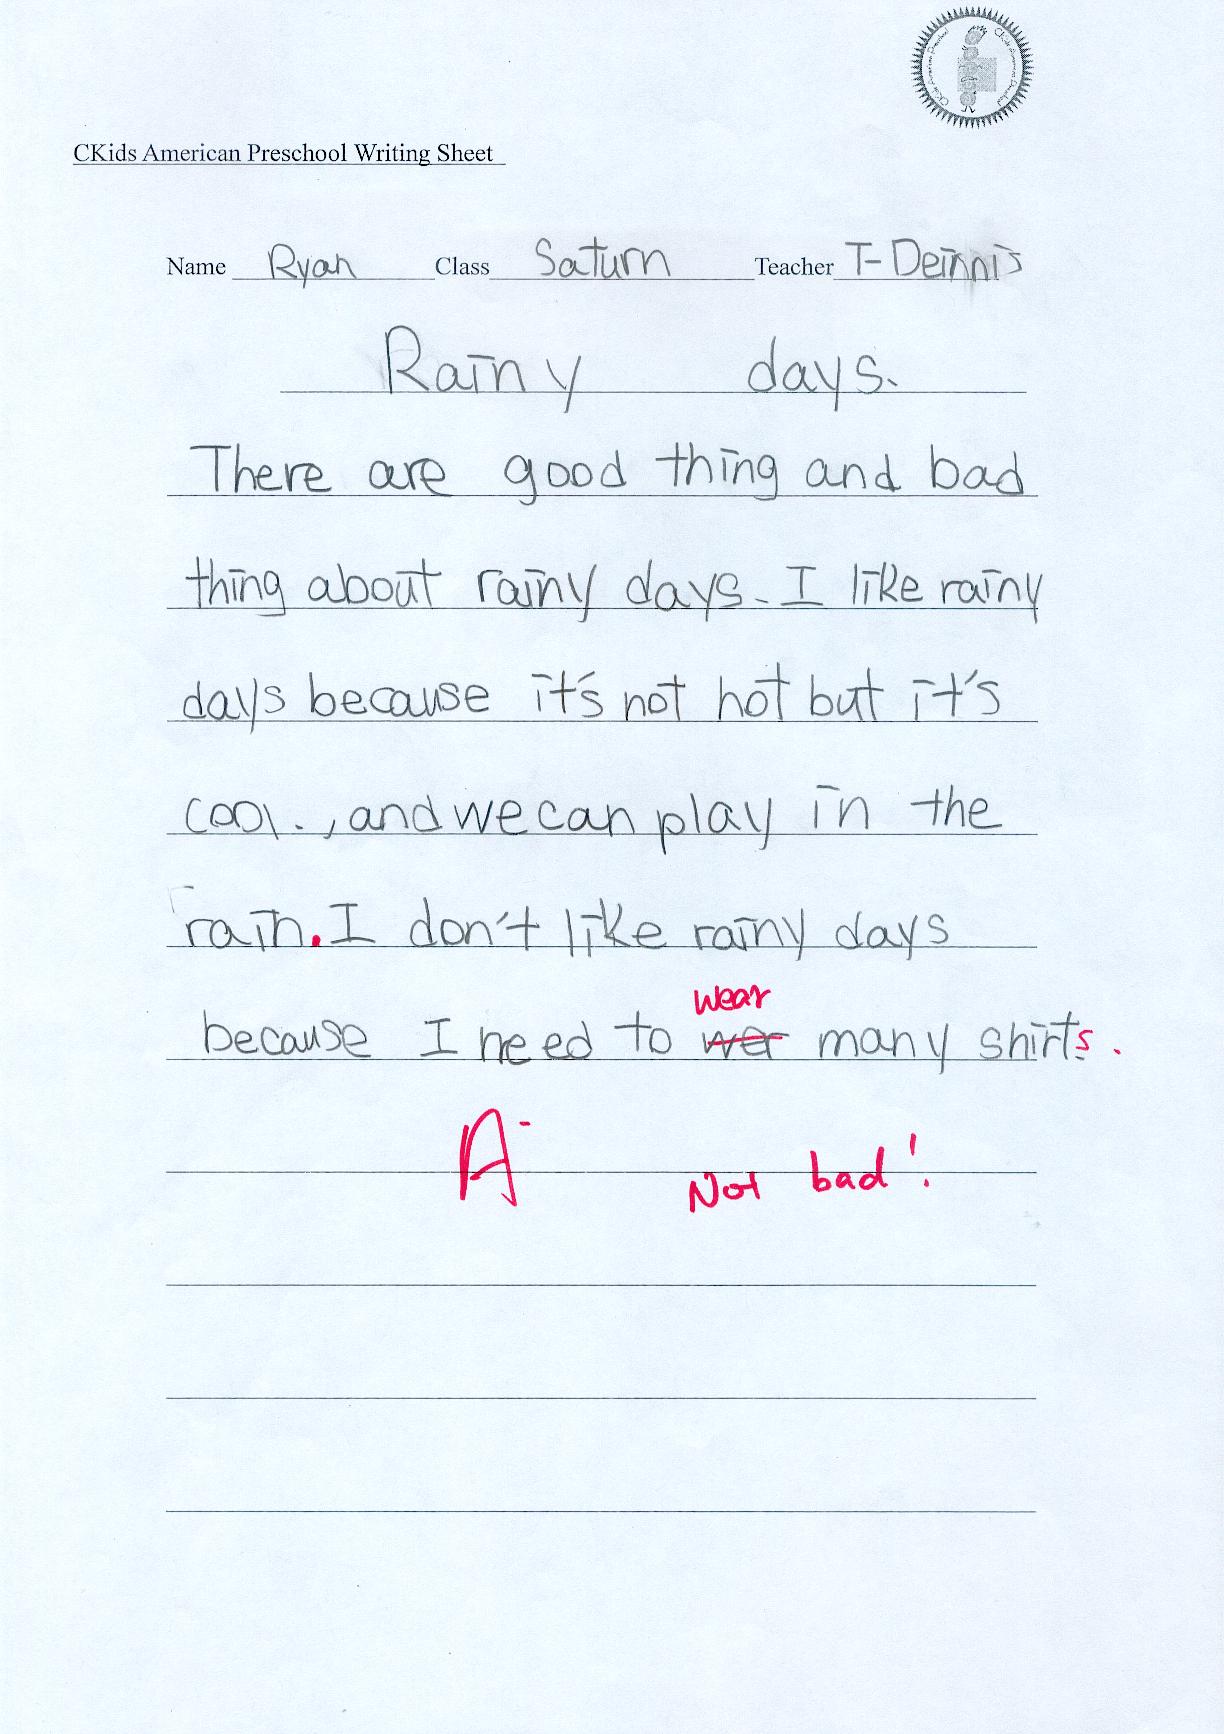 CKids American Preschool
CKids American Preschool Writing Sheet
Name Ryan Class Saturn Teacher T-Deinnis
Rainy days.
There are good thing and bad
thing about rainy days. I like rainy
days because it's not hot but it's
cool. , and we can play in the
rain. I don't like rainy days
wear
because I need to wer many shirts.
A-
Not bad!